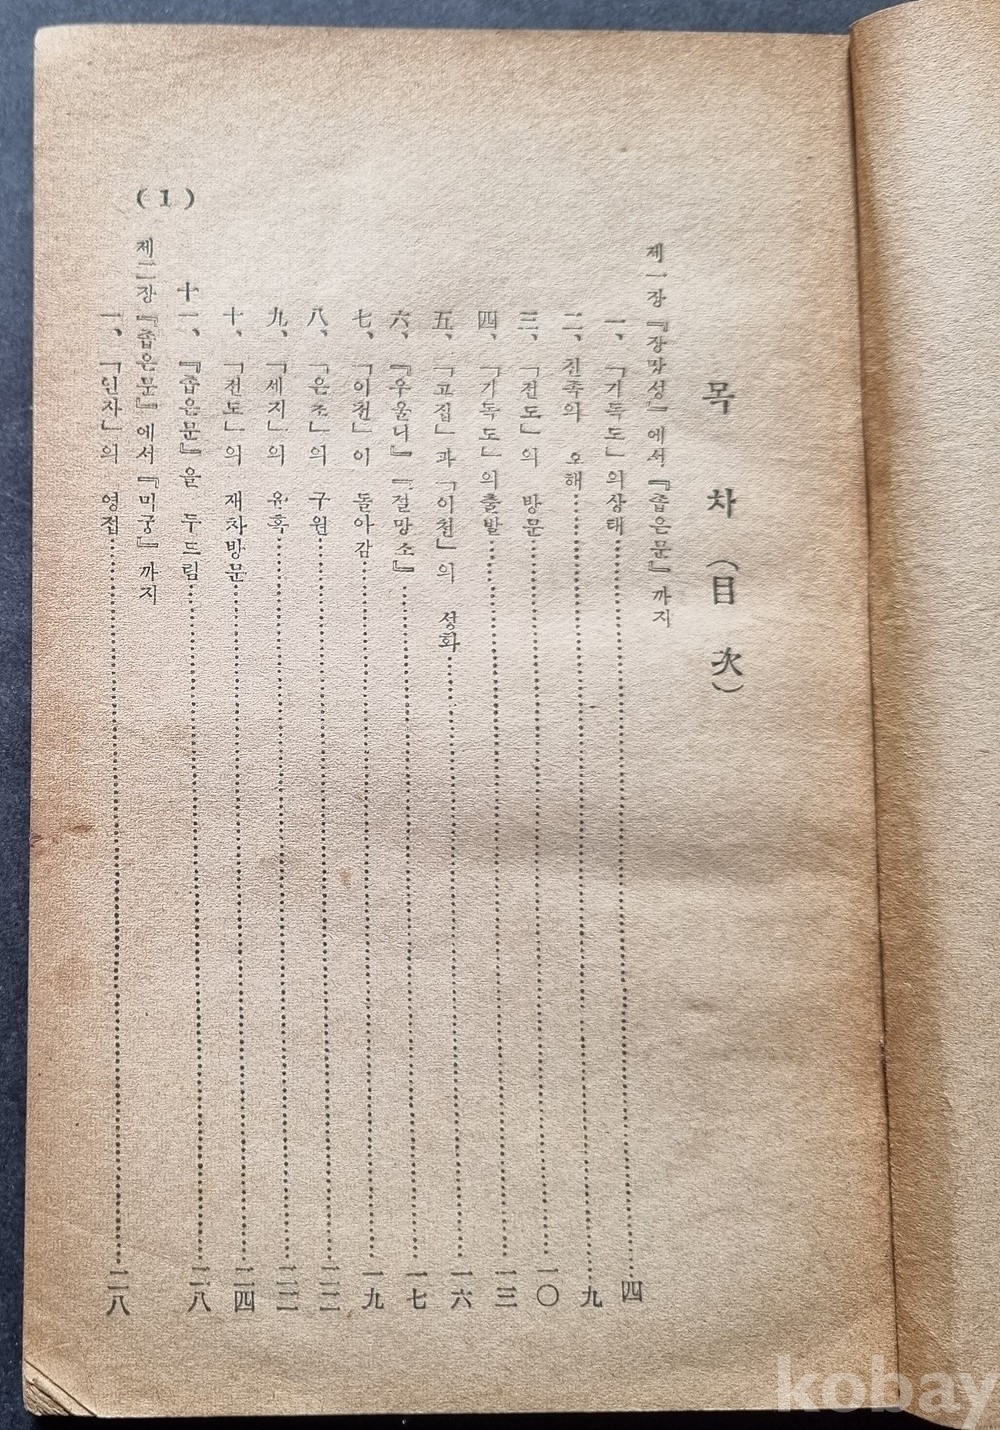 목 차 (目 次)
제一장 『장망성』에서 『좁은문』까지
一、「기독도」의상태 四
二、친족의 오해 九
三、「전도」의 방문 一〇
四、「기독도」의출발 一三
五、「고집」과「이천」의 성화 一六
六、『우울니』『절망소』 一七
七、「이천」이 돌아감 一九
八、「은조」의 구원 二二
九、「세지」의 유혹 二二
十、「전도」의 재차방문 二四
十一、『좁은문』을 두드림 二八
제二장 『좁은문』에서 『미궁』까지
一、「인자」의 영접 二八
(1)
kobay